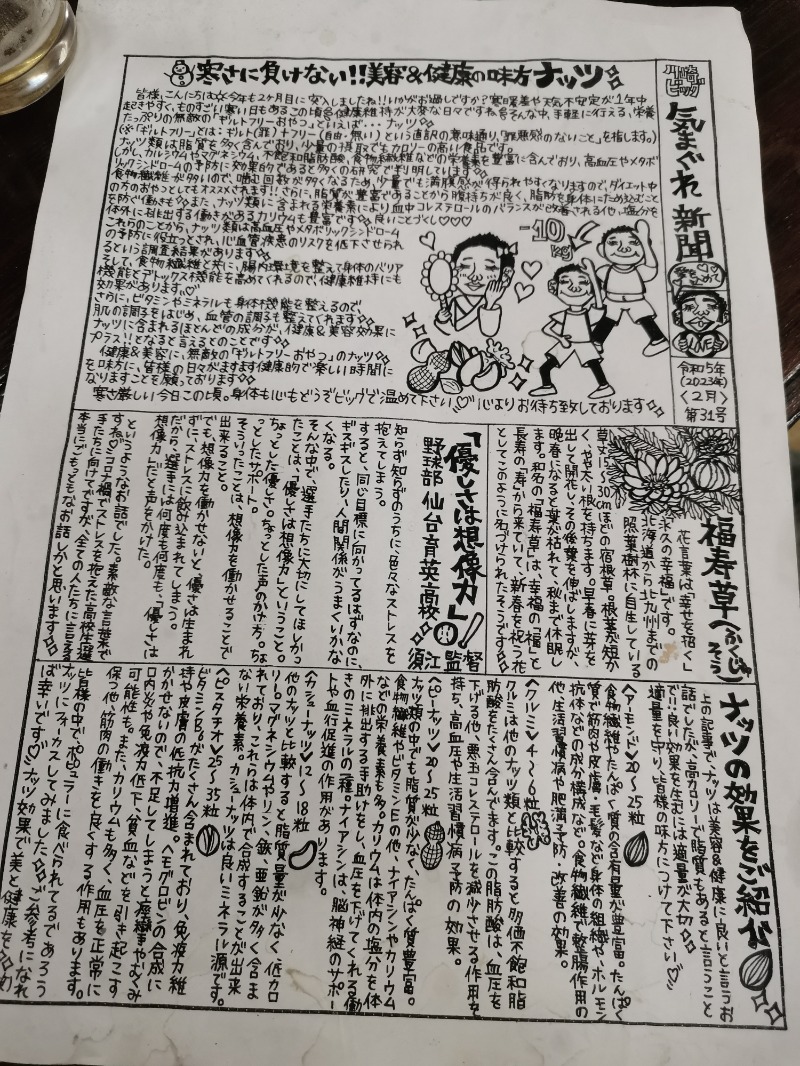 川崎ビッグ
気まぐれ新聞
愛をこめて
LIVE
令和5年
(2023年)
<2月>
第31号
寒さに負けない!!美容&健康の味方ナッツ
皆様、こんにちは。今年も2ヶ月目に突入しましたね!!いかがお過しですか?寒暖差や天気不安定が1年中
起きやすく、ものすごい寒い日もあるこの頃。健康維持が大変な日々ですね。そんな中、手軽に行える、栄養
たっぷりの無敵の「ギルトフリーおやつ」といえば…ナッツ
(※「ギルトフリー」とは:ギルト(罪)+フリー(自由・無い)という直訳の意味通り、「罪悪感のないこと」を指します。)
ナッツ類は脂質を多く含んでおり、少量の摂取でもカロリーの高い食品です。
しかし、カルシウムやマグネシウム、不飽和脂肪酸、食物繊維などの栄養素を豊富に含んでおり、高血圧やメタボ
リックシンドロームの予防に効果的であると多くの研究で判明しています
食物繊維が多いので、噛む回数が多くなるため、少量でも満腹感が得られやすくなりますので、ダイエット中
の方のおやつとしてもオススメされます!!さらに、脂質が豊富であることから腹持ちが良く、脂肪を身体にため込むこと
を防ぐ働きも。また、ナッツ類に含まれる栄養素により血中コレステロールのバランスが改善される他、塩分を
体外に排出する働きがあるカリウムも豊富です。良いことづくし♡♡♡
これらのことから、ナッツ類は高血圧やメタボリックシンドローム
の予防に役立つとされ、心血管疾患のリスクを低下させられ
るという調査結果があります。
そして、食物繊維と共に、腸内環境を整えて身体のバリア
機能とデトックス機能を高めてくれるので、健康維持にも
効果があります。
さらに、ビタミンやミネラルも身体機能を整えるので、
肌の調子をはじめ、血管の調子も整えてくれます
ナッツに含まれるほとんどの成分が、健康&美容効果に
プラス!!となると言えるとのことです
健康&美容に、無敵の「ギルトフリーおやつ」のナッツ
を味方に、皆様の日々がますます健康的で楽しい時間に
なりますことを願っております
寒さ厳しい今日この頃。身体も心もどうぞビッグで温めて下さい♡心よりお待ち致しております
-10
kg
福寿草(ふくじゅそう)
花言葉は「幸せを招く」
「永久の幸福」です。
北海道から北九州までの
照葉樹林に自生している
草丈15〜30cmほどの宿根草。根茎が短か
く、やや太い根を持ちます。早春に芽を
出して開花し、その後葉を伸ばしますが、
晩春になると葉が枯れて、秋まで休眠し
ます。和名の「福寿草」は、幸福の「福」と
長寿の「寿」から来ていて、新春を祝う花
としてこのように名づけられたそうです
「優しさは想像力」
野球部 仙台育英高校
須江監督
知らず知らずのうちに、色々なストレスを
抱えてしまう。
すると、同じ目標に向かってるはずなのに、
ギスギスしたり、人間関係がうまくいかな
くなる。
そんな中で、選手たちに大切にしてほしかっ
たことは、「優しさは想像力」ということ。
ちょっとした優しさ。ちょっとした声のかけ方。ちょ
っとしたサポート。
そういったことは、想像力を働かせることで
出来ること。
でも、想像力を働かせないと、優しさは生まれ
ずに、ストレスに飲み込まれてしまう。
だから、選手には何度も何度も、「優しさは
想像力」だと声をかけた。
というようなお話でした。素敵な言葉で
すね♡コロナ禍でストレスを抱えた高校生選
手たちに向けてですが、全ての人たちに言える
本当にごもっともなお話しかと思います
ナッツの効果をご紹介
上の記事で、ナッツは美容&健康に良いと言うお
話でしたが、高カロリーで脂質でもあると言うこと
で!!良い効果を生むには適量が大切
適量を守り、皆様の味方につけて下さい♡
<アーモンド>20〜25粒
食物繊維やたんぱく質の含有量が豊富。たんぱく
質で筋肉や皮膚、毛髪など身体の組織や、ホルモン
抗体などの成分構成など。食物繊維で整腸作用の
他、生活習慣病や肥満予防、改善の効果。
<クルミ>4〜6粒
クルミは他のナッツ類と比較すると多価不飽和脂
肪酸をたくさん含んでます。この脂肪酸は、血圧を
下げる他、悪玉コレステロールを減少させる作用を
持ち、高血圧や生活習慣病予防の効果。
<ピーナッツ>20〜25粒
ナッツ類の中でも脂質が少なく、たんぱく質豊富。
食物繊維やビタミンEの他、ナイアシンやカリウム
などの栄養素も多。カリウムは体内の塩分を体
外に排出する手助けをし、血圧を下げてくれる働
きのミネラルの一種。ナイアシンは、脳神経のサポー
トや血行促進の作用があります。
<カシューナッツ>12〜18粒
他のナッツと比較すると脂質量が少なく、低カロ
リー。マグネシウムやリン、鉄、亜鉛が多く含ま
れており、これらは体内で合成することが出来
ない栄養素。カシューナッツは良いミネラル源です。
<ピスタチオ>25〜35粒
ビタミンB6がたくさん含まれており、免疫力維
持や皮膚の低抗力増進。ヘモグロビンの合成に
かかせないので、不足してしまうと痙攣やむくみ
口内炎や免疫力低下、貧血などを引き起こす
可能性も。また、カリウムも多く、血圧を正常に
保つ他、筋肉の働きを良くする作用もあります。
皆様の中でポピュラーに食べられてるであろう
ナッツにフォーカスしてみました。ご参考になれ
ば幸いです♡ナッツ効果で美と健康を